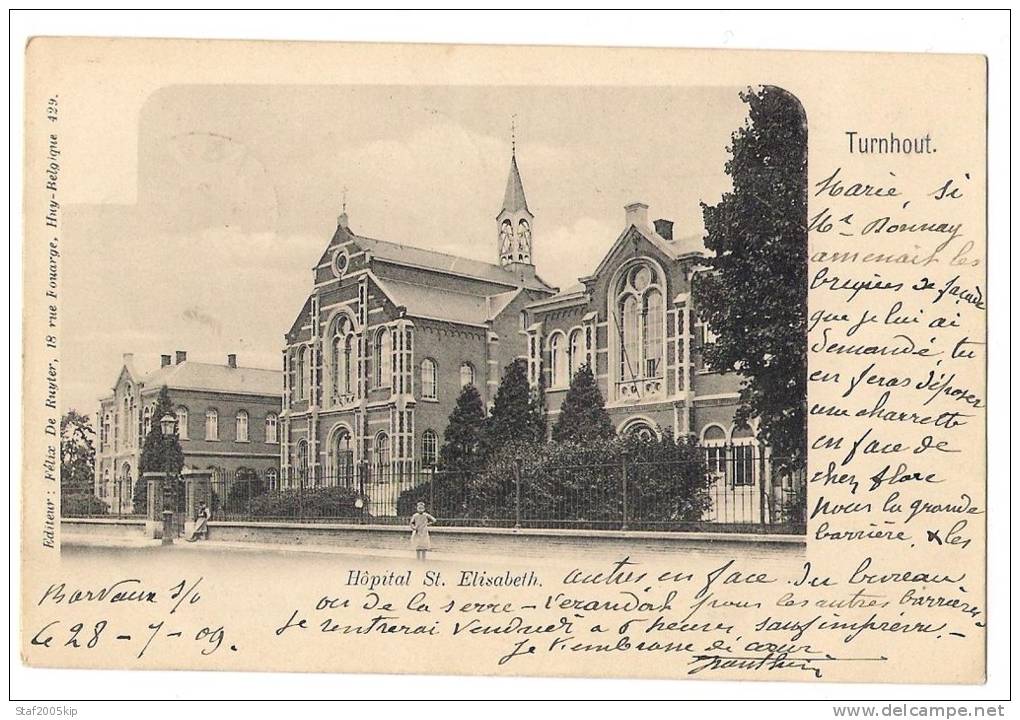 Editeur: Félix De Ruyter, 18 rue Fouarge, Huy-Belgique 429.
Turnhout.
Marie, si
Mr Bonnay
amenait les
bruyères de façade
que je lui ai
demandé, tu
en feras déposer
une charrette
en face de
chez flore
pour la grande
barrière. & les
Hôpital St. Elisabeth.
autres en face du bureau
ou de la serre - Verandah pour les autres barrières
Je rentrerai vendredi a 6 heures sauf imprevu. -
Je t'embrasse de cœur
Barvaux s/o
le 28 - 7 - 09.
Staf2005kip
http://www.delcampe.net